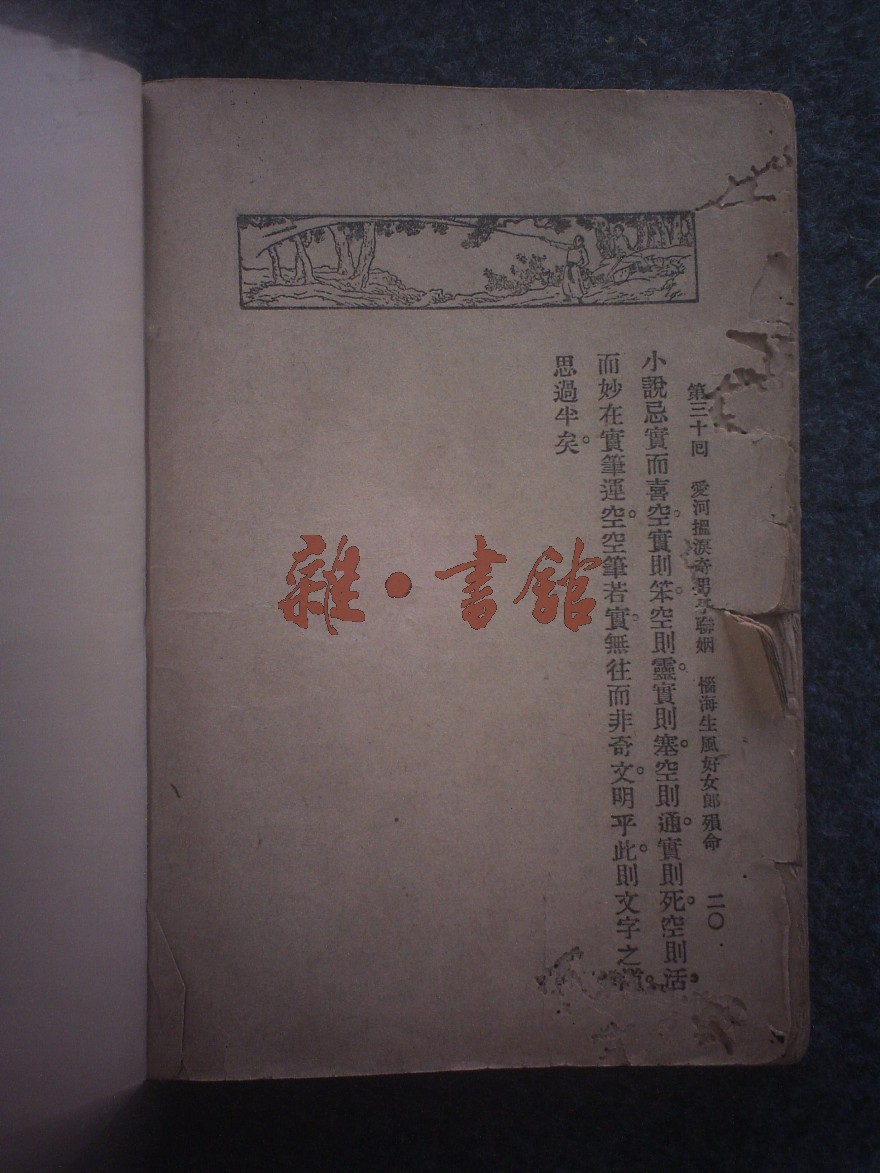 第三十回 愛河搵淚奇 聯姻 惱海生風好女郎殞命 二〇
小說忌實而喜空。實則笨。空則靈。實則塞。空則通。實則死。空則活。
而妙在實筆運空。空筆若實。無往而非奇文。明乎此。則文字之
思過半矣。
雜·書館